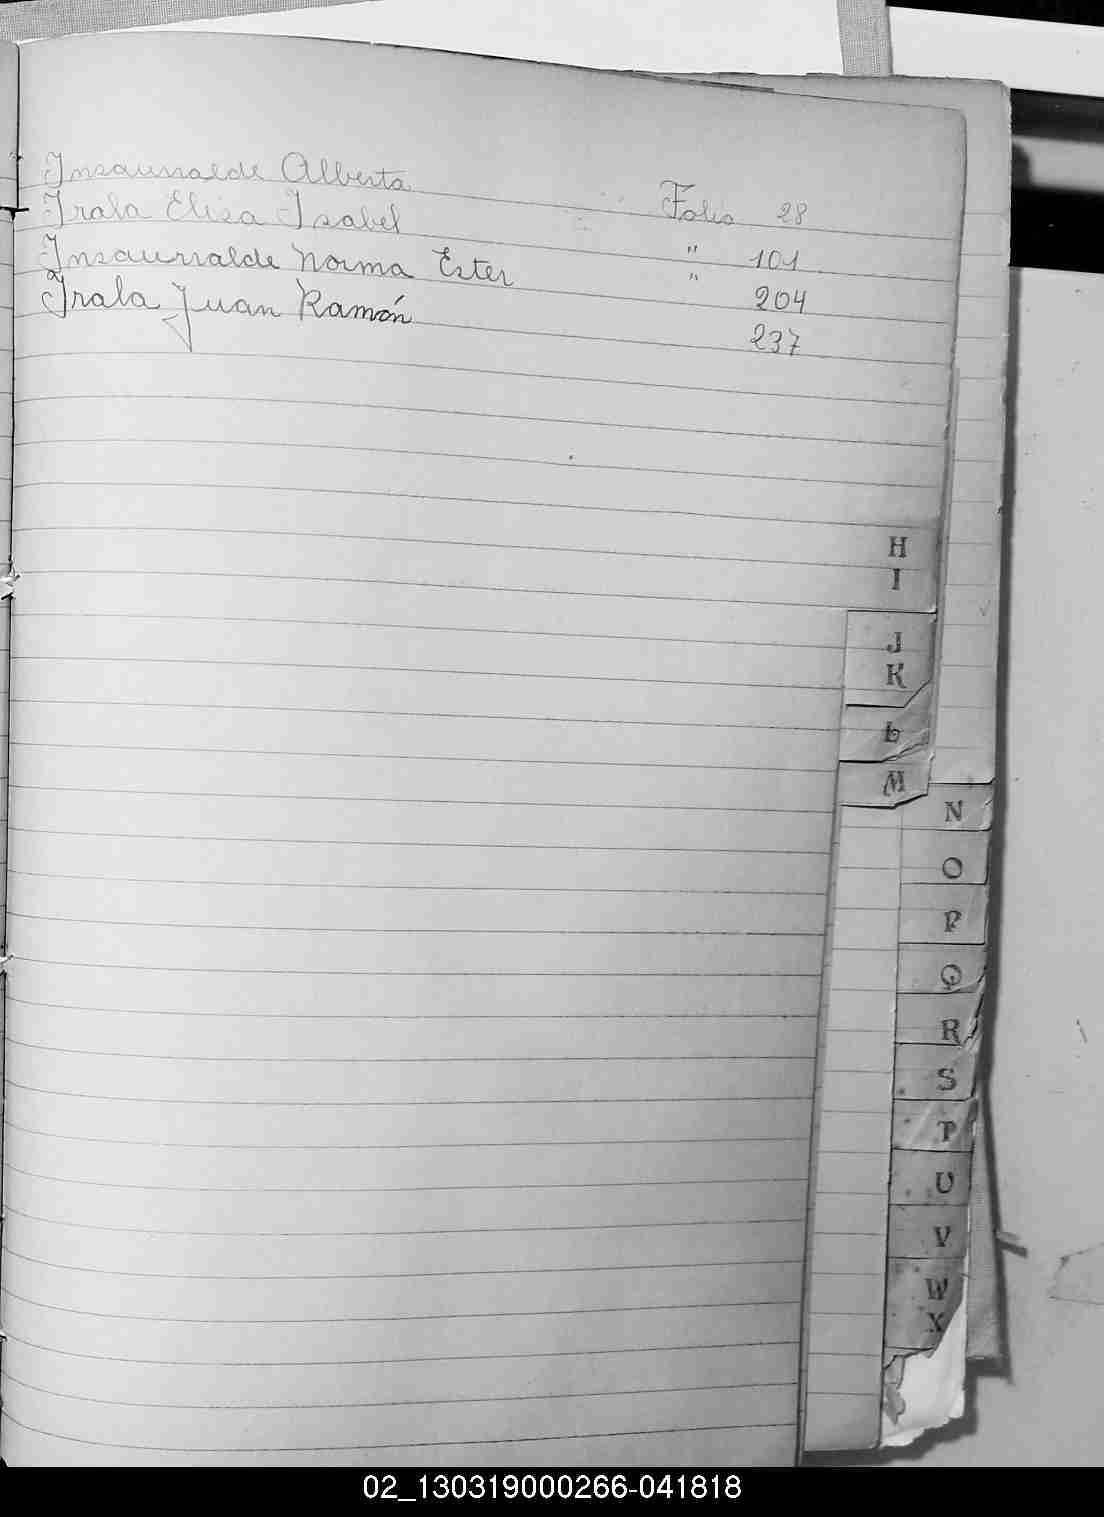 Insaurralde Alberta Folio 28
Irala Elisa Isabel " 101
Insaurralde Norma Ester " 204
Irala Juan Ramón 237
H
I
J
K
L
M
N
O
P
Q
R
S
T
U
V
W
X
02_130319000266-041818